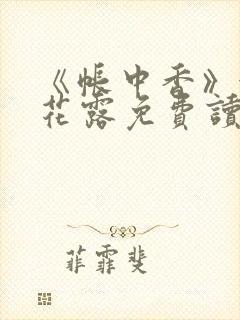 《帳中香》
花露免費讀
菲霏斐